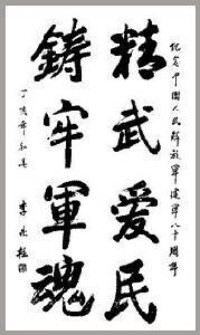 紀念中國人民解放軍建軍八十周年
精武爱民
鑄牢軍魂
丁亥年初春
李